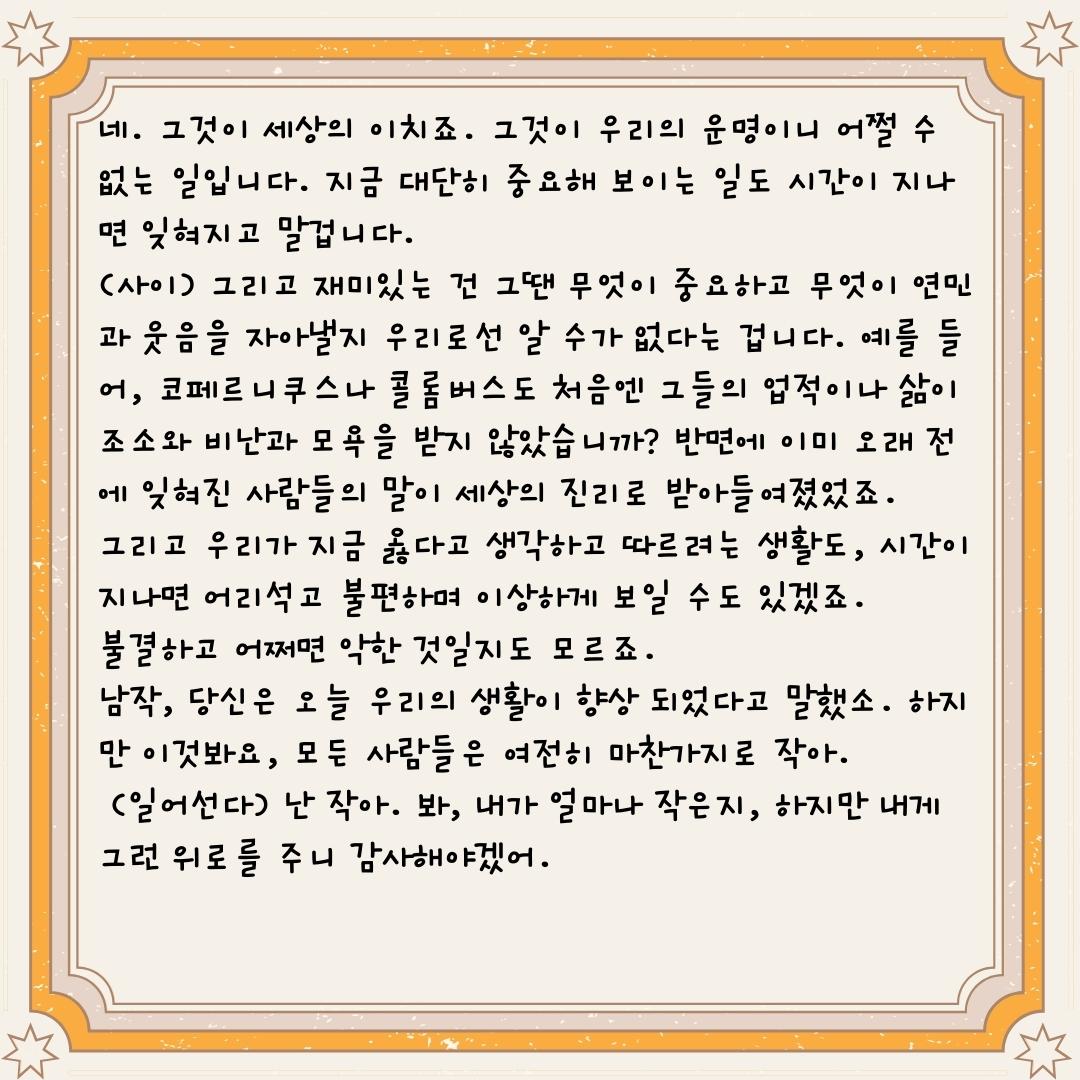 네. 그것이 세상의 이치죠. 그것이 우리의 운명이니 어쩔 수
없는 일입니다. 지금 대단히 중요해 보이는 일도 시간이 지나
면 잊혀지고 말겁니다.
(사이) 그리고 재미있는 건 그땐 무엇이 중요하고 무엇이 연민
과 웃음을 자아낼지 우리로선 알 수가 없다는 겁니다. 예를 들
어, 코페르니쿠스나 콜롬버스도 처음엔 그들의 업적이나 삶이
조소와 비난과 모욕을 받지 않았습니까? 반면에 이미 오래 전
에 잊혀진 사람들의 말이 세상의 진리로 받아들여졌었죠.
그리고 우리가 지금 옳다고 생각하고 따르려는 생활도, 시간이
지나면 어리석고 불편하며 이상하게 보일 수도 있겠죠.
불결하고 어쩌면 악한 것일지도 모르죠.
남작, 당신은 오늘 우리의 생활이 향상 되었다고 말했소. 하지
만 이것봐요, 모든 사람들은 여전히 마찬가지로 작아.
(일어선다) 난 작아. 봐, 내가 얼마나 작은지, 하지만 내게
그런 위로를 주니 감사해야겠어.